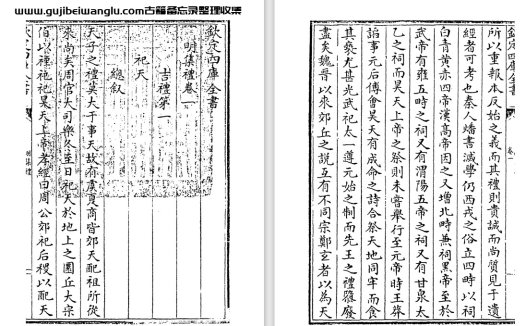 www.gujibeiwanglu.com古籍备忘录整理收集
欽定四庫全書
明集禮卷一
吉禮第一
祀天
總叙
天子之禮莫大于事天故有虞夏商皆郊天配祖所從
來尚矣周官大司樂冬至日祀天於地上之圜丘大宗
伯以禋祀祀昊天上帝孝經曰周公郊祀后稷以配天
所以重報本反始之義而其禮則貴誠而尚質見于遺
經者可考也秦人燔書滅學仍西戎之俗立四時以祠
白青黄赤四帝漢高帝因之又增北畤兼祠黑帝至於
武帝有雍五畤之祠又有渭陽五帝之祠又有甘泉太
乙之祠而昊天上帝之祭則未嘗舉行至元帝時王莽
諂事元后傅會昊天有成命之詩合祭天地同牢而食
其䙝尤甚光武祀太一遵元始之制而先王之禮隳廢
盡矣魏晉以來郊丘之說互有不同宗鄭玄者以為天